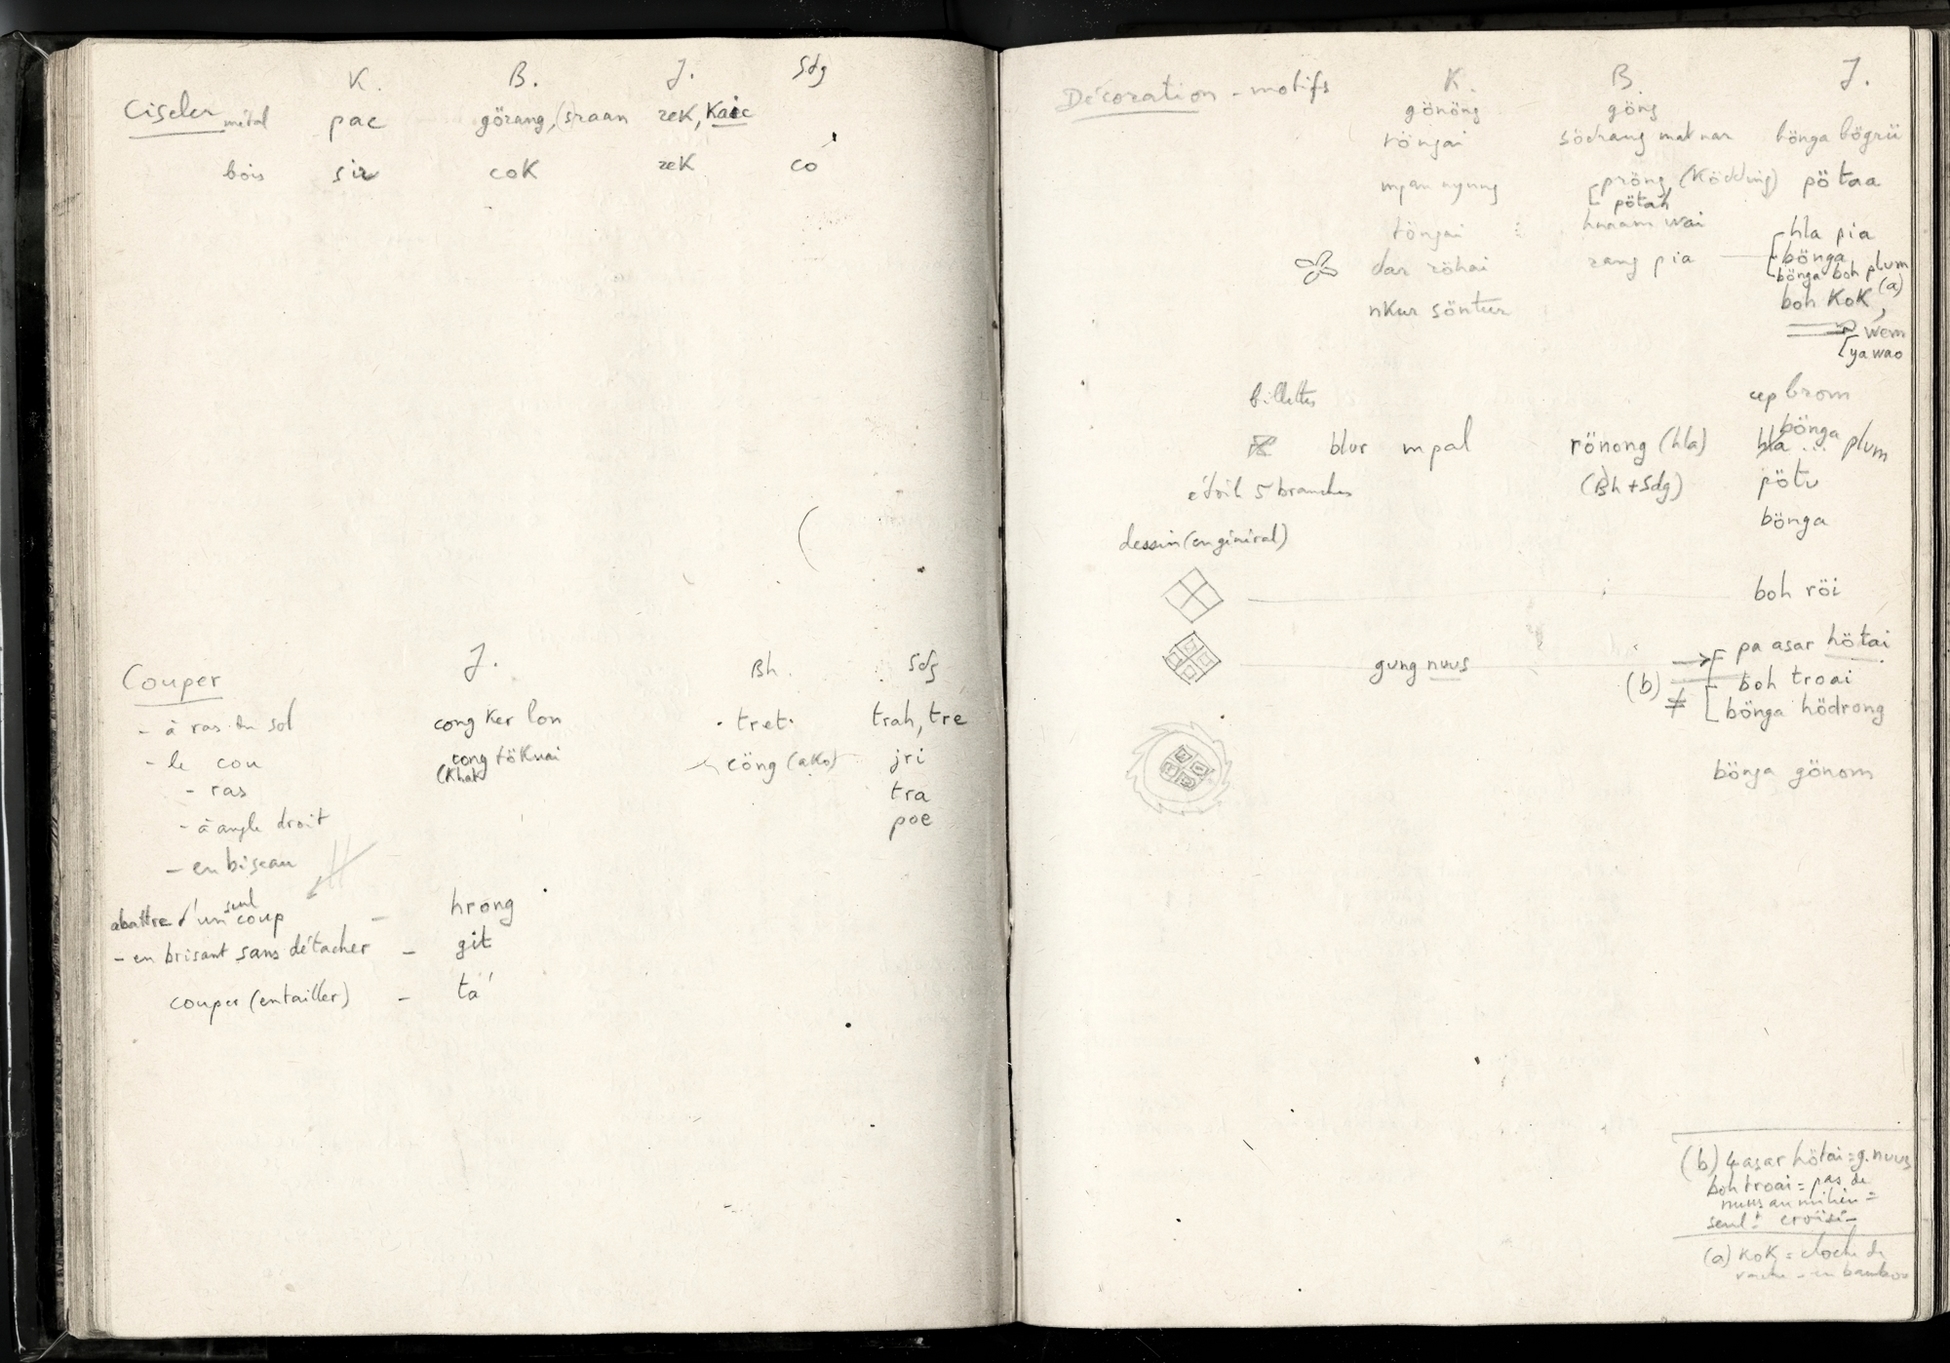 K. B. J. Sdg
Ciseler métal pac görang, (sraan rek, Kaic
bois sir coK rek co
Couper J. Bh. Sdg
- à ras du sol cong Ker lon tret trah, tre
- le cou cong töKuai cöng (aKo) jri
(Khak
- ras tra
- à angle droit poe
- en biseau
abattre d'un seul coup - hrong
- en brisant sans détacher - git
couper (entailler) - ta'
Décoration - motifs K. B. J.
gönöng göng
röngai södrang mat nar bönga bögrü
pröng (Ködding) pötaa
pötah
töngai wai hla pia
dar röhai rang pia bönga
bönga boh plum
nKur söntur boh KoK (a)
wem
ya wao
billettes cep brom
bönga
blur mpal rönong (hla) hla ... plum
étoile 5 branches (Bh + Sdg) pötu
dessin (en général) bönga
boh röi
gung nuus pa asar hötai
(b) boh troai
≠ bönga hödrong
bönga gönom
(b) 4 asar hötai = g. nuus
boh troai = pas de
nuus au milieu =
seult croisi
(a) KoK = cloche de
vache - en bambou